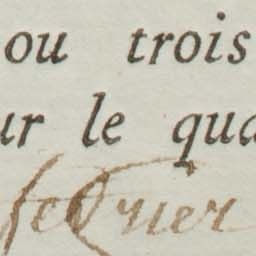 ou trois
ur le qua
fevrier